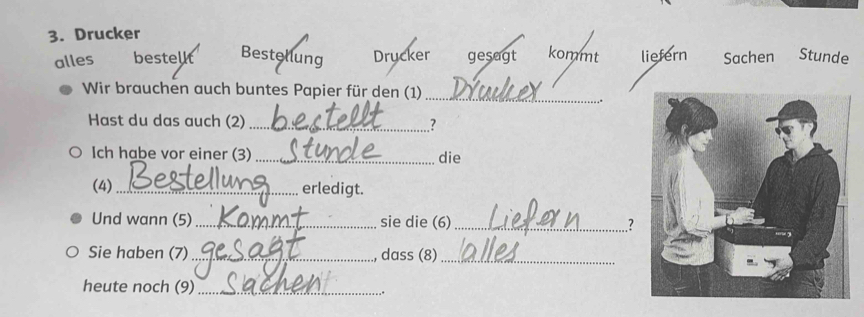 3. Drucker
alles bestellt Bestellung Drucker gesagt kommt liefern Sachen Stunde
Wir brauchen auch buntes Papier für den (1) Drucker.
Hast du das auch (2) bestellt?
Ich habe vor einer (3) Stunde die
(4) Bestellung erledigt.
Und wann (5) Kommt sie die (6) Liefern?
Sie haben (7) gesagt, dass (8) alles
heute noch (9) Sachen.